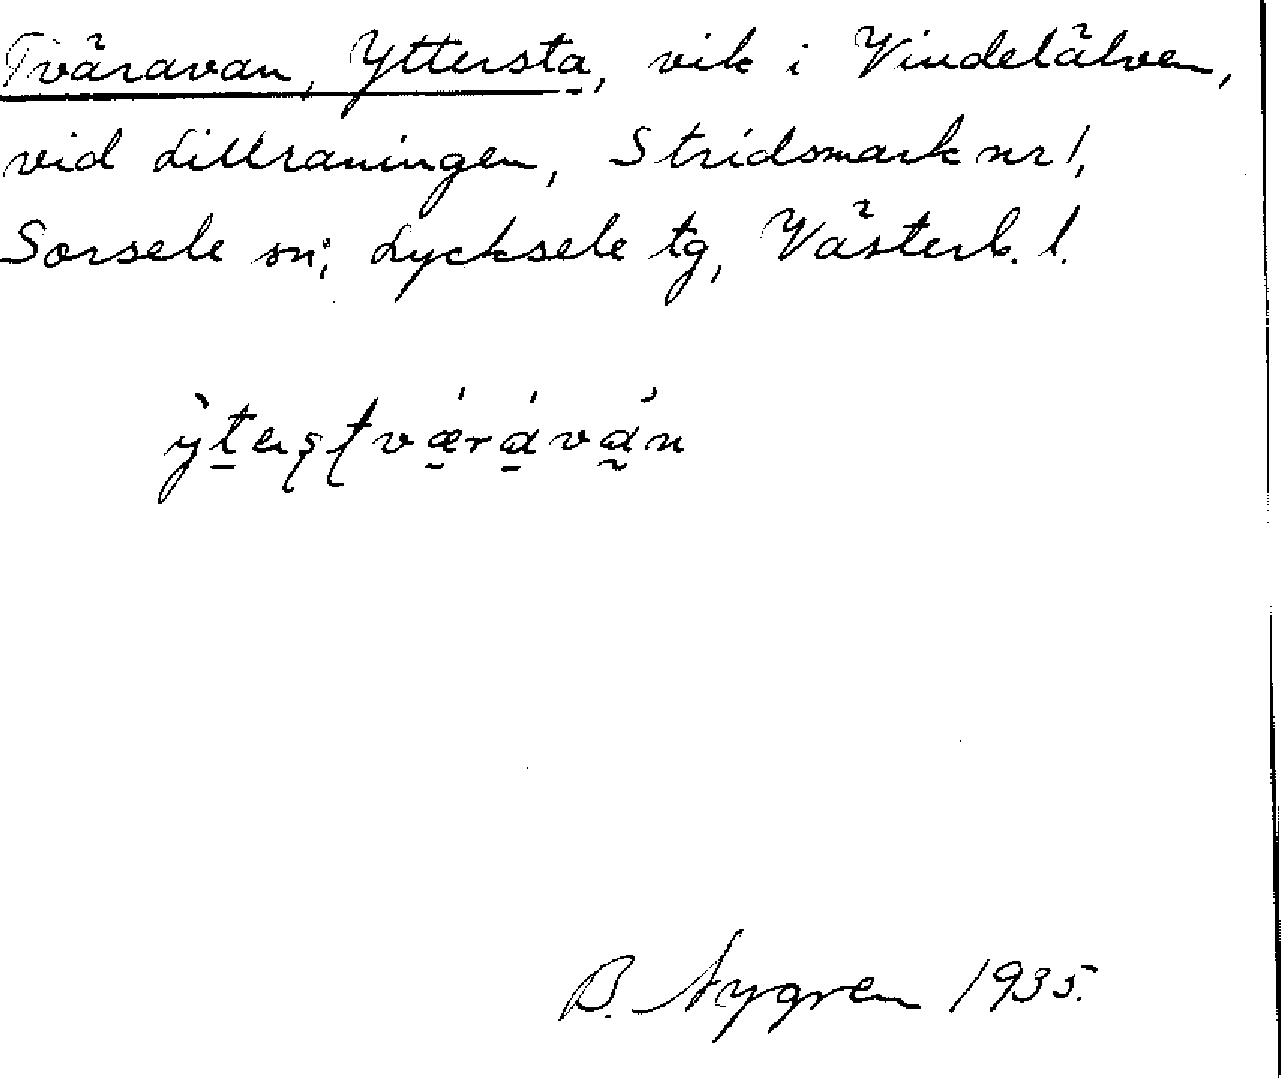 Tväravan, Yttersta, vik i Vindelälven,
vid Lillraningen, Stridsmark nr 1,
Sorsele sn; Lycksele tg, Västerb. l.
B. Nygren 1935.